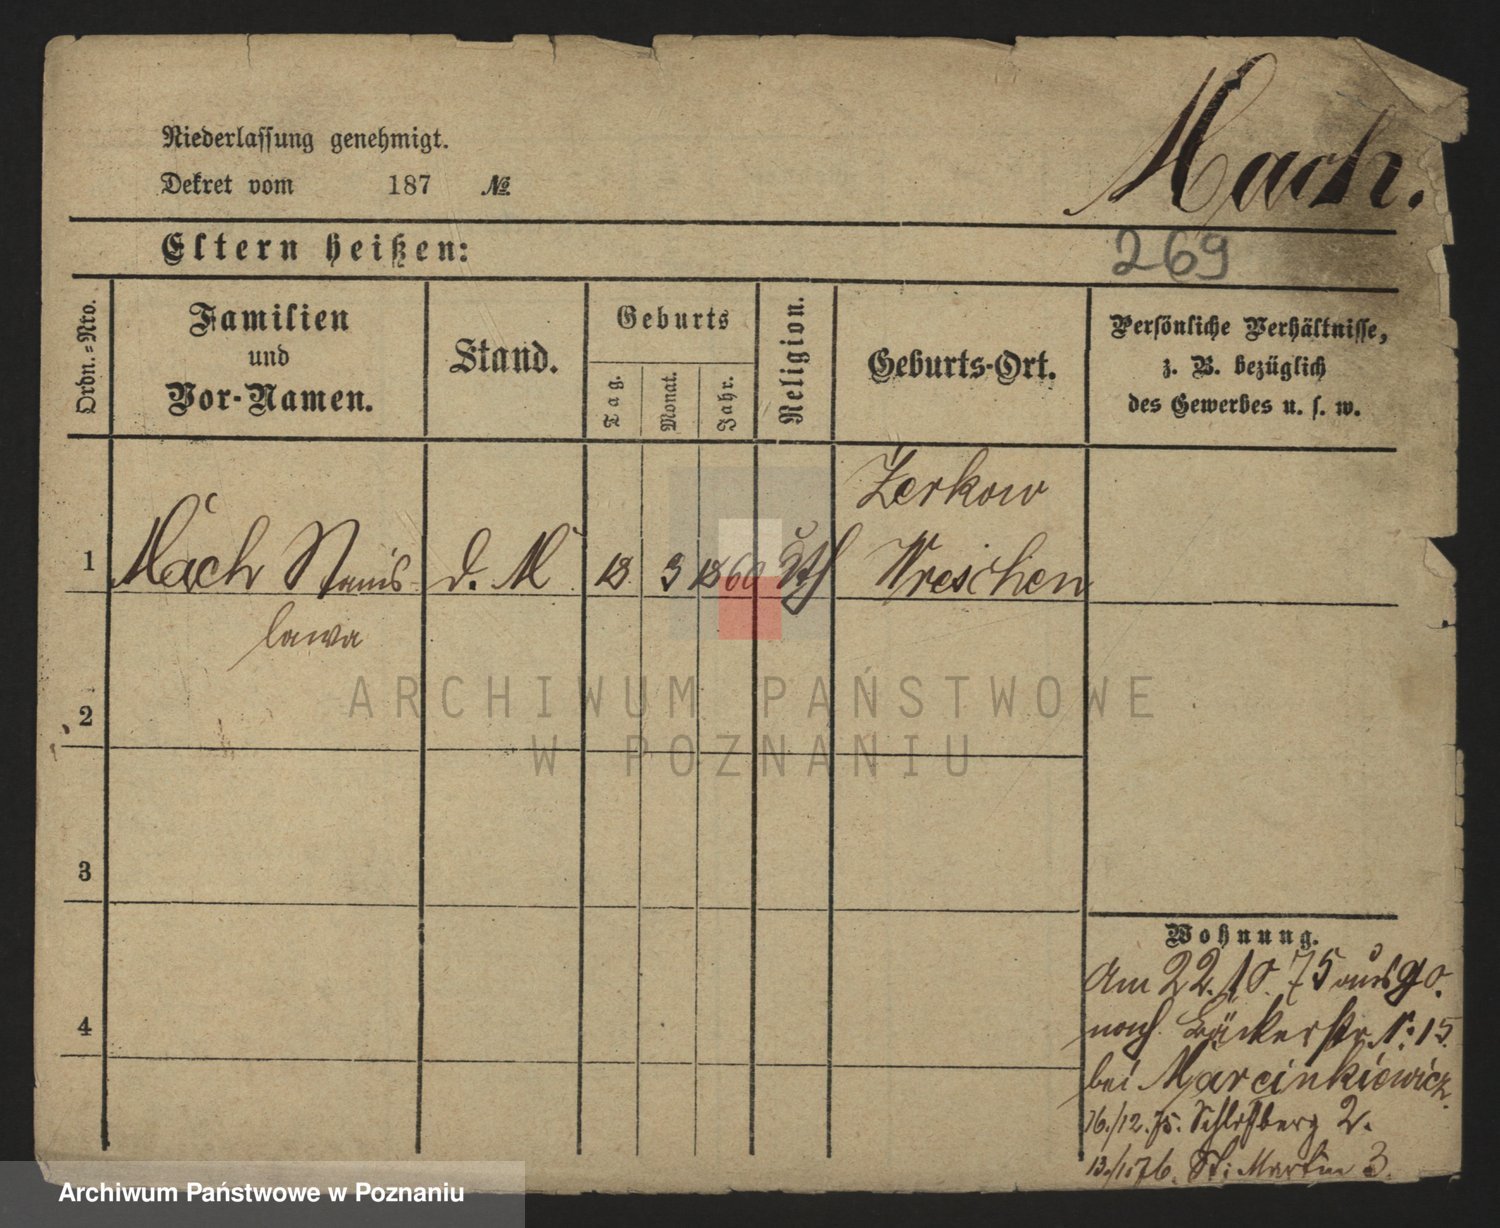 Mach.
Niederlassung genehmigt.
Dekret vom 187 №
Eltern heißen:
269
Ordn.=Nro.
Familien
und
Vor-Namen.
Stand.
Geburts
Tag.
Monat.
Jahr.
Religion.
Geburts-Ort.
Persönliche Verhältnisse,
z. B. bezüglich
des Gewerbes u. s. w.
Zerkow
1 Mach Stanis d. M 18 3 1860 kth Wreschen
lawa
2
3
4
Wohnung.
Am 22.10.75
nach Bäckerstr. N: 15.
bei Marcinkiewicz.
16./12.75. Schloßberg 2.
13./1.76. St: Martin 3.
ARCHIWUM PAŃSTWOWE
W POZNANIU
Archiwum Państwowe w Poznaniu